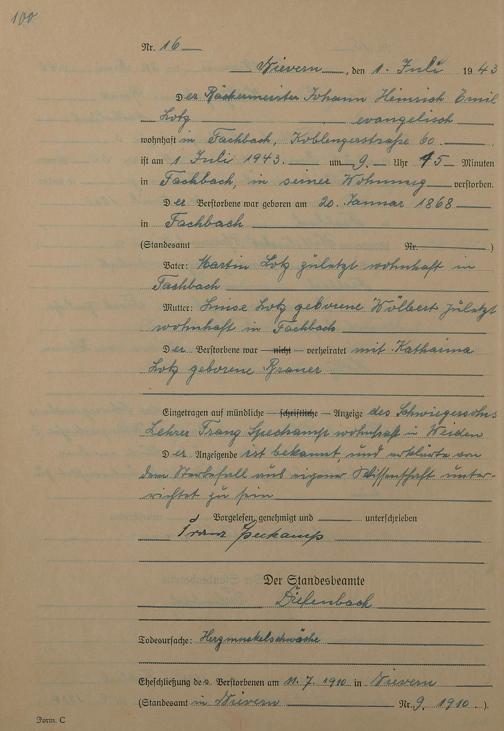 100
Nr. 16
Nievern, den 1. Juli 1943
Der Bäckermeister Johann Heinrich Emil
Lotz evangelisch
wohnhaft in Fachbach, Koblenzerstraße 60
ist am 1 Juli 1943. um 9. Uhr 45 Minuten
in Fachbach, in seiner Wohnung verstorben.
Der Verstorbene war geboren am 20. Januar 1868
in Fachbach
(Standesamt Nr. )
Vater: Martin Lotz zuletzt wohnhaft in
Fachbach
Mutter: Luise Lotz geborene Wölbert zuletzt
wohnhaft in Fachbach
Der Verstorbene war nicht verheiratet mit Katharina
Lotz geborene
Eingetragen auf mündliche schriftliche Anzeige des Schwiegersohns
Lehrer Franz Speekamp wohnhaft in Weiden
Der Anzeigende ist bekannt, und erklärte von
dem Sterbefall aus eigener Wissenschaft unter-
richtet zu sein
Vorgelesen, genehmigt und unterschrieben
Franz Speekamp
Der Standesbeamte
Diefenbach
Todesursache: Herzmuskelschwäche
Eheschließung des Verstorbenen am 11. 7. 1910 in Nievern
(Standesamt in Nievern Nr. 9, 1910.).
Form. C